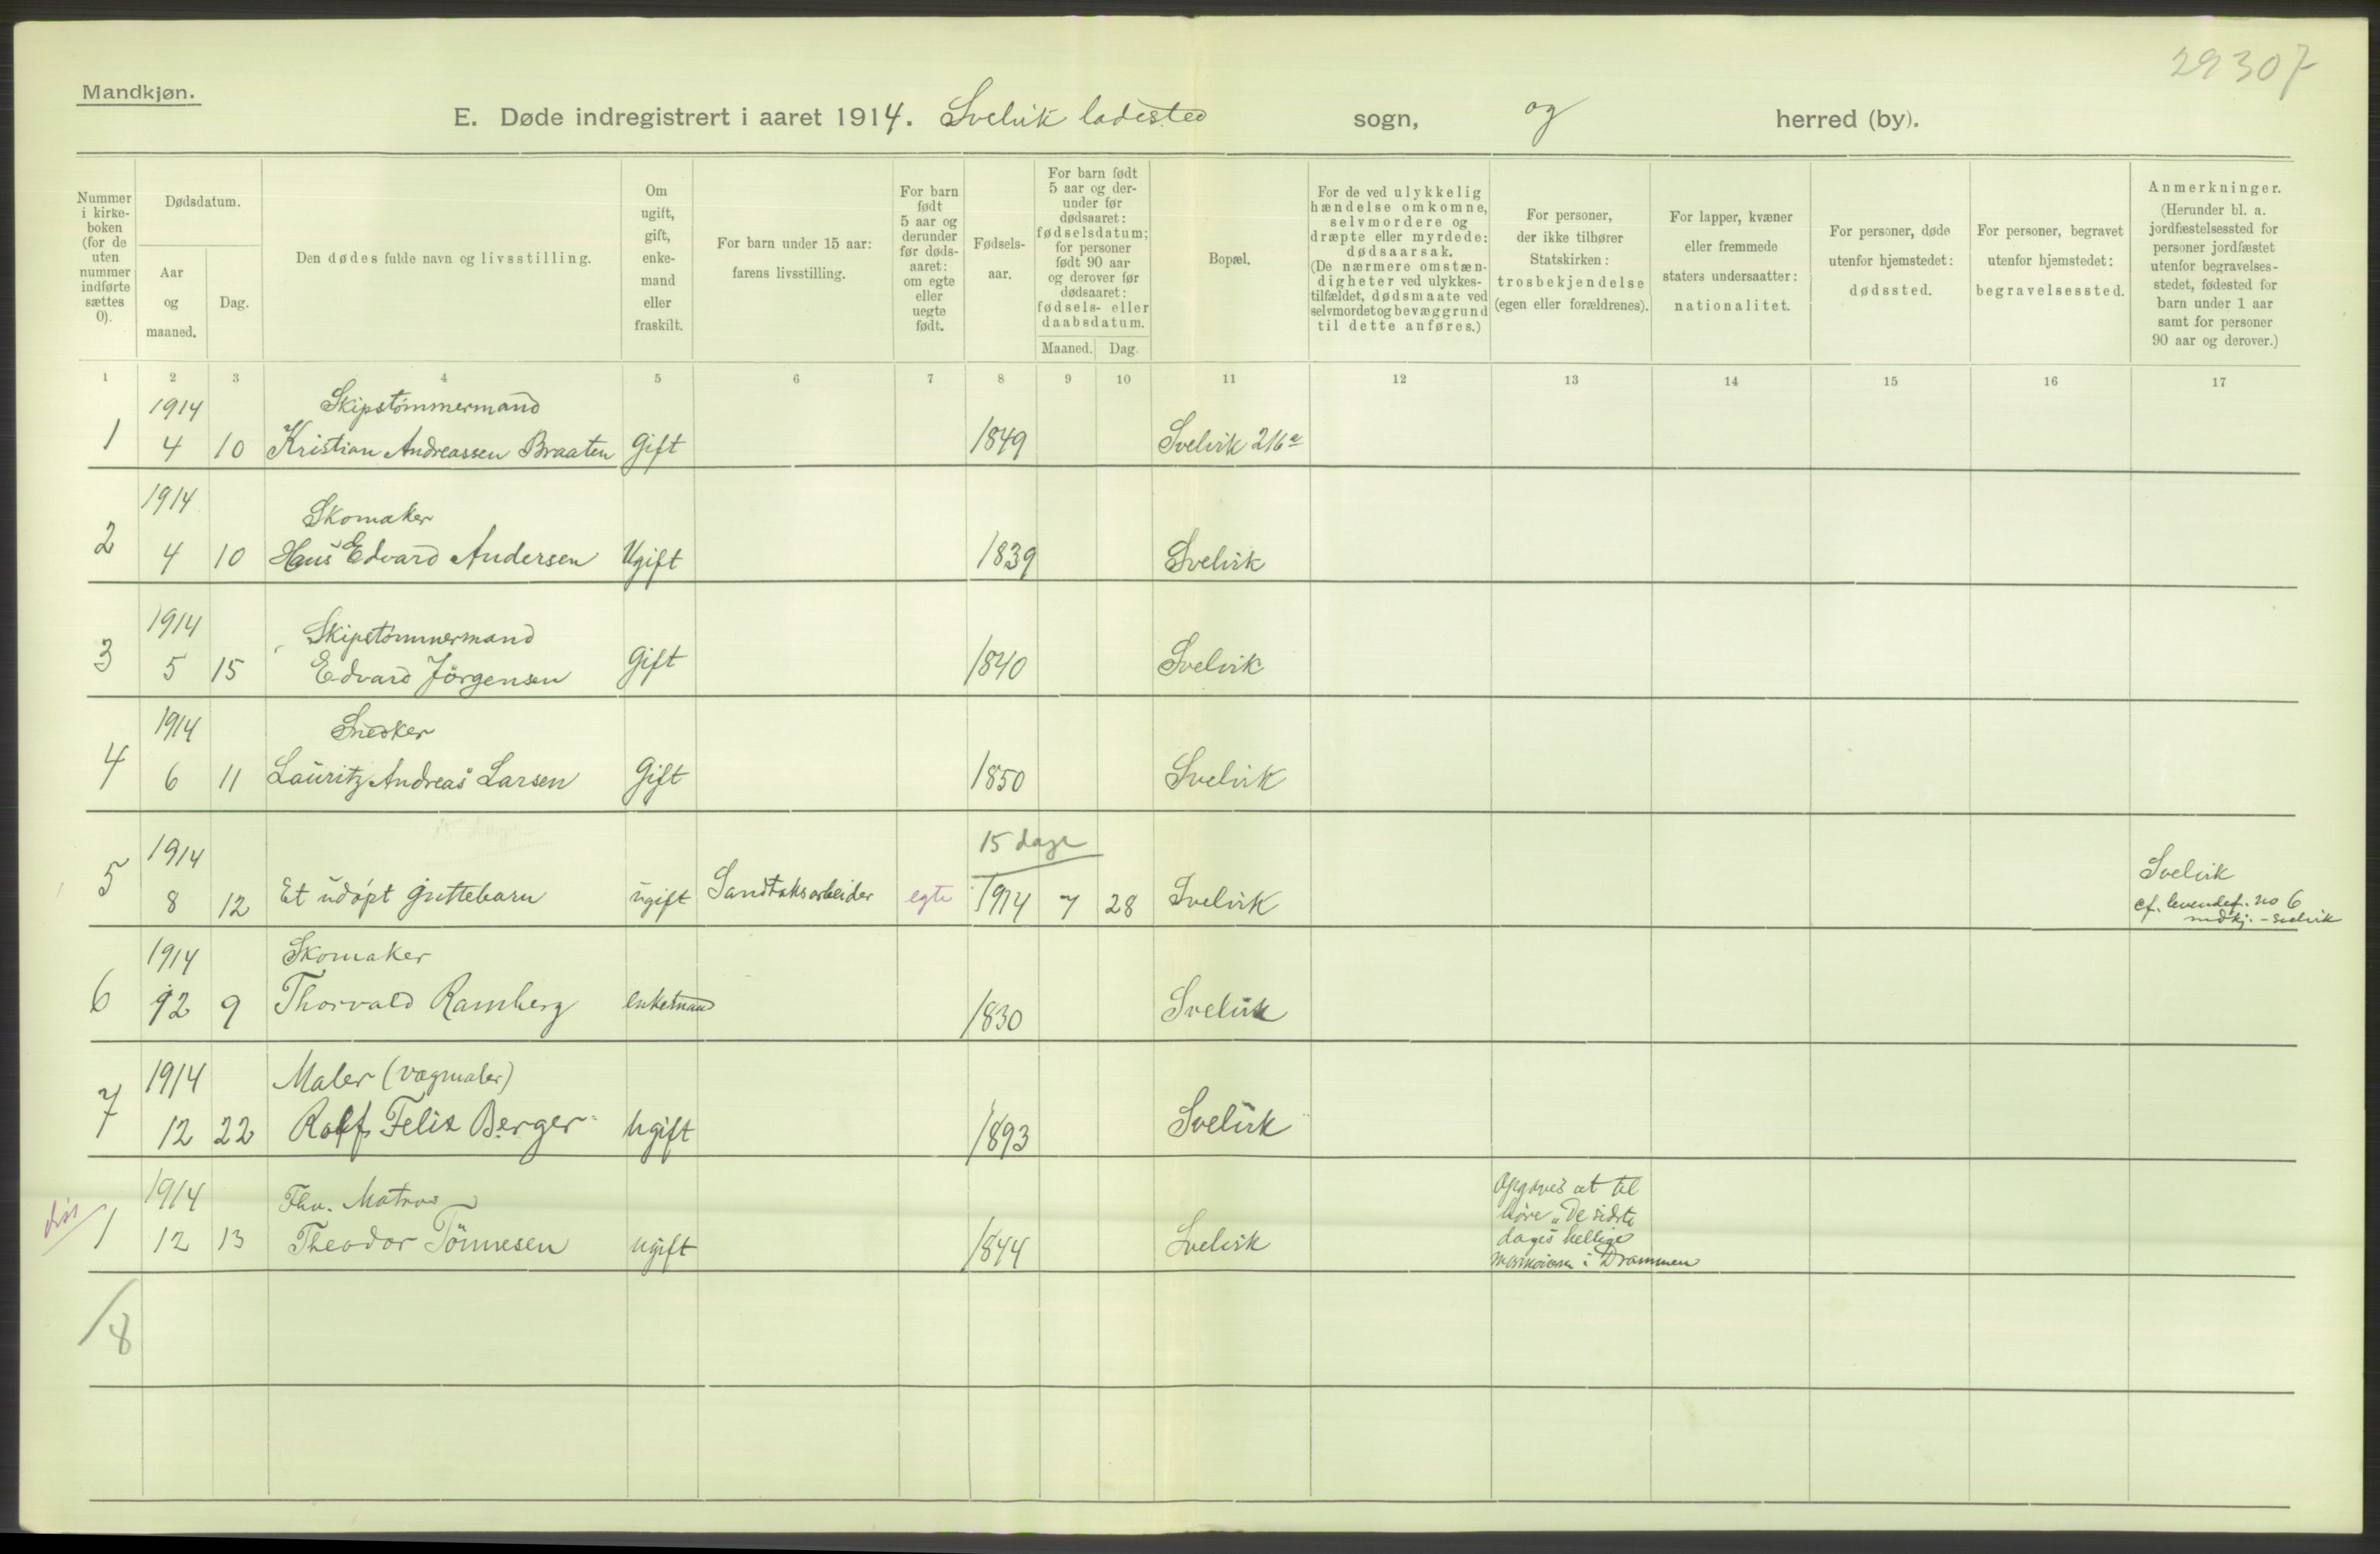 29307
Mandkjøn.
E. Døde indregistrert i aaret 1914. Svelvik ladested sogn, og herred (by).
Nummer i kirke-boken (for de uten nummer indførte sættes 0).
Dødsdatum.
Aar og maaned.
Dag.
Den dødes fulde navn og livsstilling.
Om ugift, gift, enke-mand eller fraskilt.
For barn under 15 aar: farens livsstilling.
For barn født 5 aar og derunder før døds-aaret: om egte eller uegte født.
Fødsels-aar.
For barn født 5 aar og der-under før dødsaaret: fødselsdatum; for personer født 90 aar og derover før dødsaaret: fødsels- eller daabsdatum.
Maaned. Dag.
Bopæl.
For de ved ulykkelig hændelse omkomne, selvmordere og dræpte eller myrdede: dødsaarsak. (De nærmere omstæn-digheter ved ulykkes-tilfældet, dødsmaate ved selvmordet og bevæggrund til dette anføres.)
For personer, der ikke tilhører Statskirken: trosbekjendelse (egen eller forældrenes).
For lapper, kvæner eller fremmede staters undersaatter: nationalitet.
For personer, døde utenfor hjemstedet: dødssted.
For personer, begravet utenfor hjemstedet: begravelsessted.
Anmerkninger. (Herunder bl. a. jordfæstelsessted for personer jordfæstet utenfor begravelses-stedet, fødested for barn under 1 aar samt for personer 90 aar og derover.)
1 2 3 4 5 6 7 8 9 10 11 12 13 14 15 16 17
1914 Skipstømmermand
1 4 10 Kristian Andreassen Braaten Gift 1849 Svelvik 216a
1914 Skomaker
2 4 10 Hans Edvard Andersen Ugift 1839 Svelvik
1914 Skipstømmermand
3 5 15 Edvard Jörgensen Gift 1840 Svelvik
1914 Snedker
4 6 11 Lauritz Andreas Larsen Gift 1850 Svelvik
1914 15 dage Svelvik
5 8 12 Et udöpt guttebarn ugift Sandtaksarbeider egte 1914 7 28 Svelvik cf. levendef. no 6
mdkj. - Svelvik
1914 Skomaker
6 12 9 Thorvald Ramberg enkemand 1830 Svelvik
1914 Maler (vogmaler)
7 12 22 Rolf Felix Berger Ugift 1893 Svelvik
1914 Fhv. Matros Opgaves at til
diss 1 12 13 Theodor Tönnesen ugift 1844 Svelvik höre "De sidste
dages hellige
i Drammen
/8